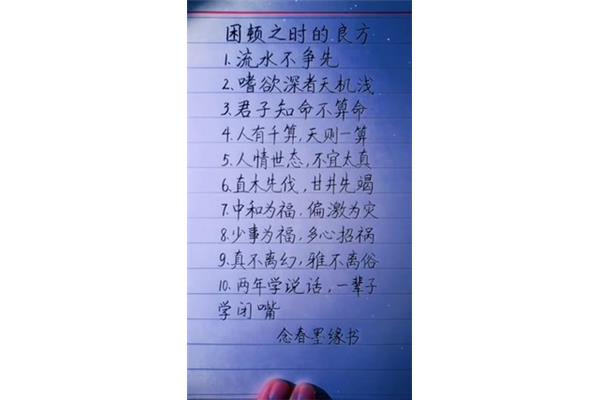 困顿之时的良方
1.流水不争先
2.嗜欲深者天机浅
3.君子知命不算命
4.人有千算,天则一算
5.人情世态,不宜太真
6.直木先伐,甘井先竭
7.中和为福,偏激为灾
8.少事为福,多心招祸
9.真不离幻,雅不离俗
10.两年学说话,一辈子
学闭嘴
念春墨缘书